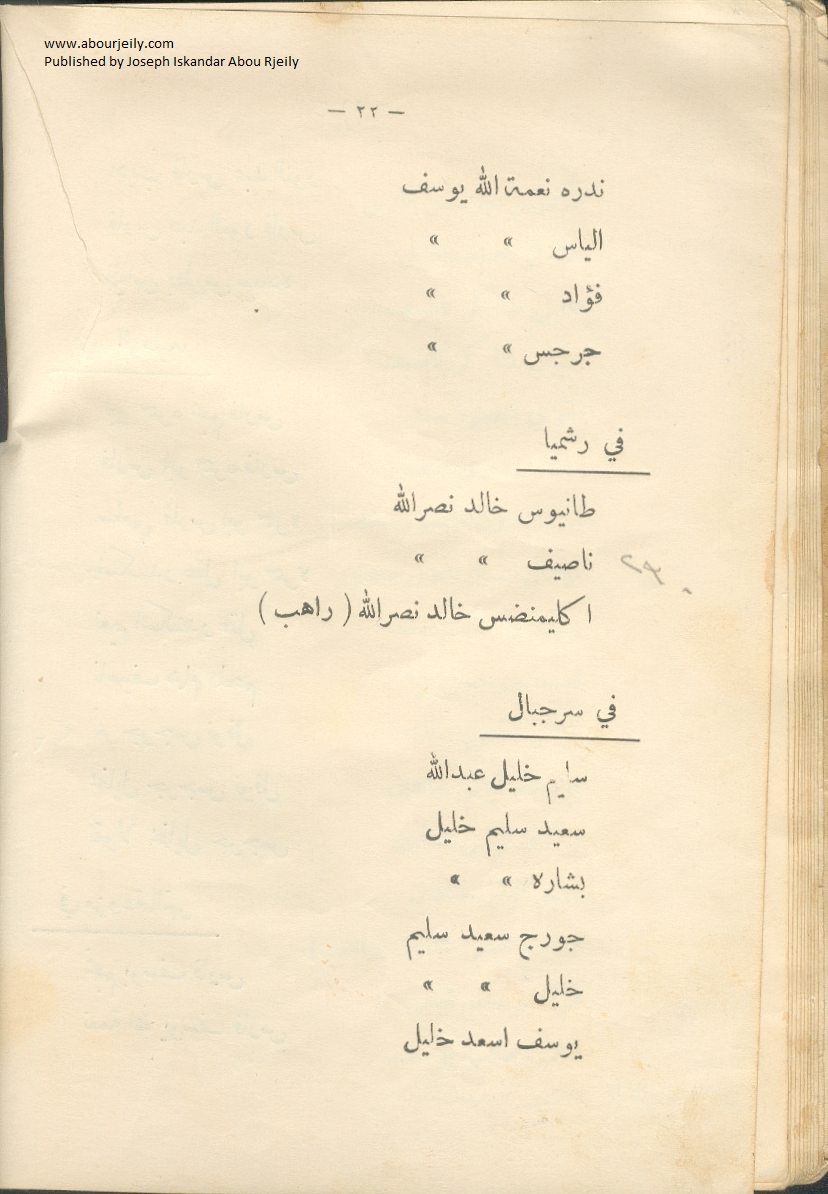 www.abourjeily.com
Published by Joseph Iskandar Abou Rjeily
— ٢٢ —
ندره نعمة الله يوسف
الياس » »
فؤاد » »
جرجس » »
في رشميا
طانيوس خالد نصرالله
ناصيف » »
اكليمنضس خالد نصرالله ( راهب )
في سرجبال
سليم خليل عبدالله
سعيد سليم خليل
بشاره » »
جورج سعيد سليم
خليل » »
يوسف اسعد خليل